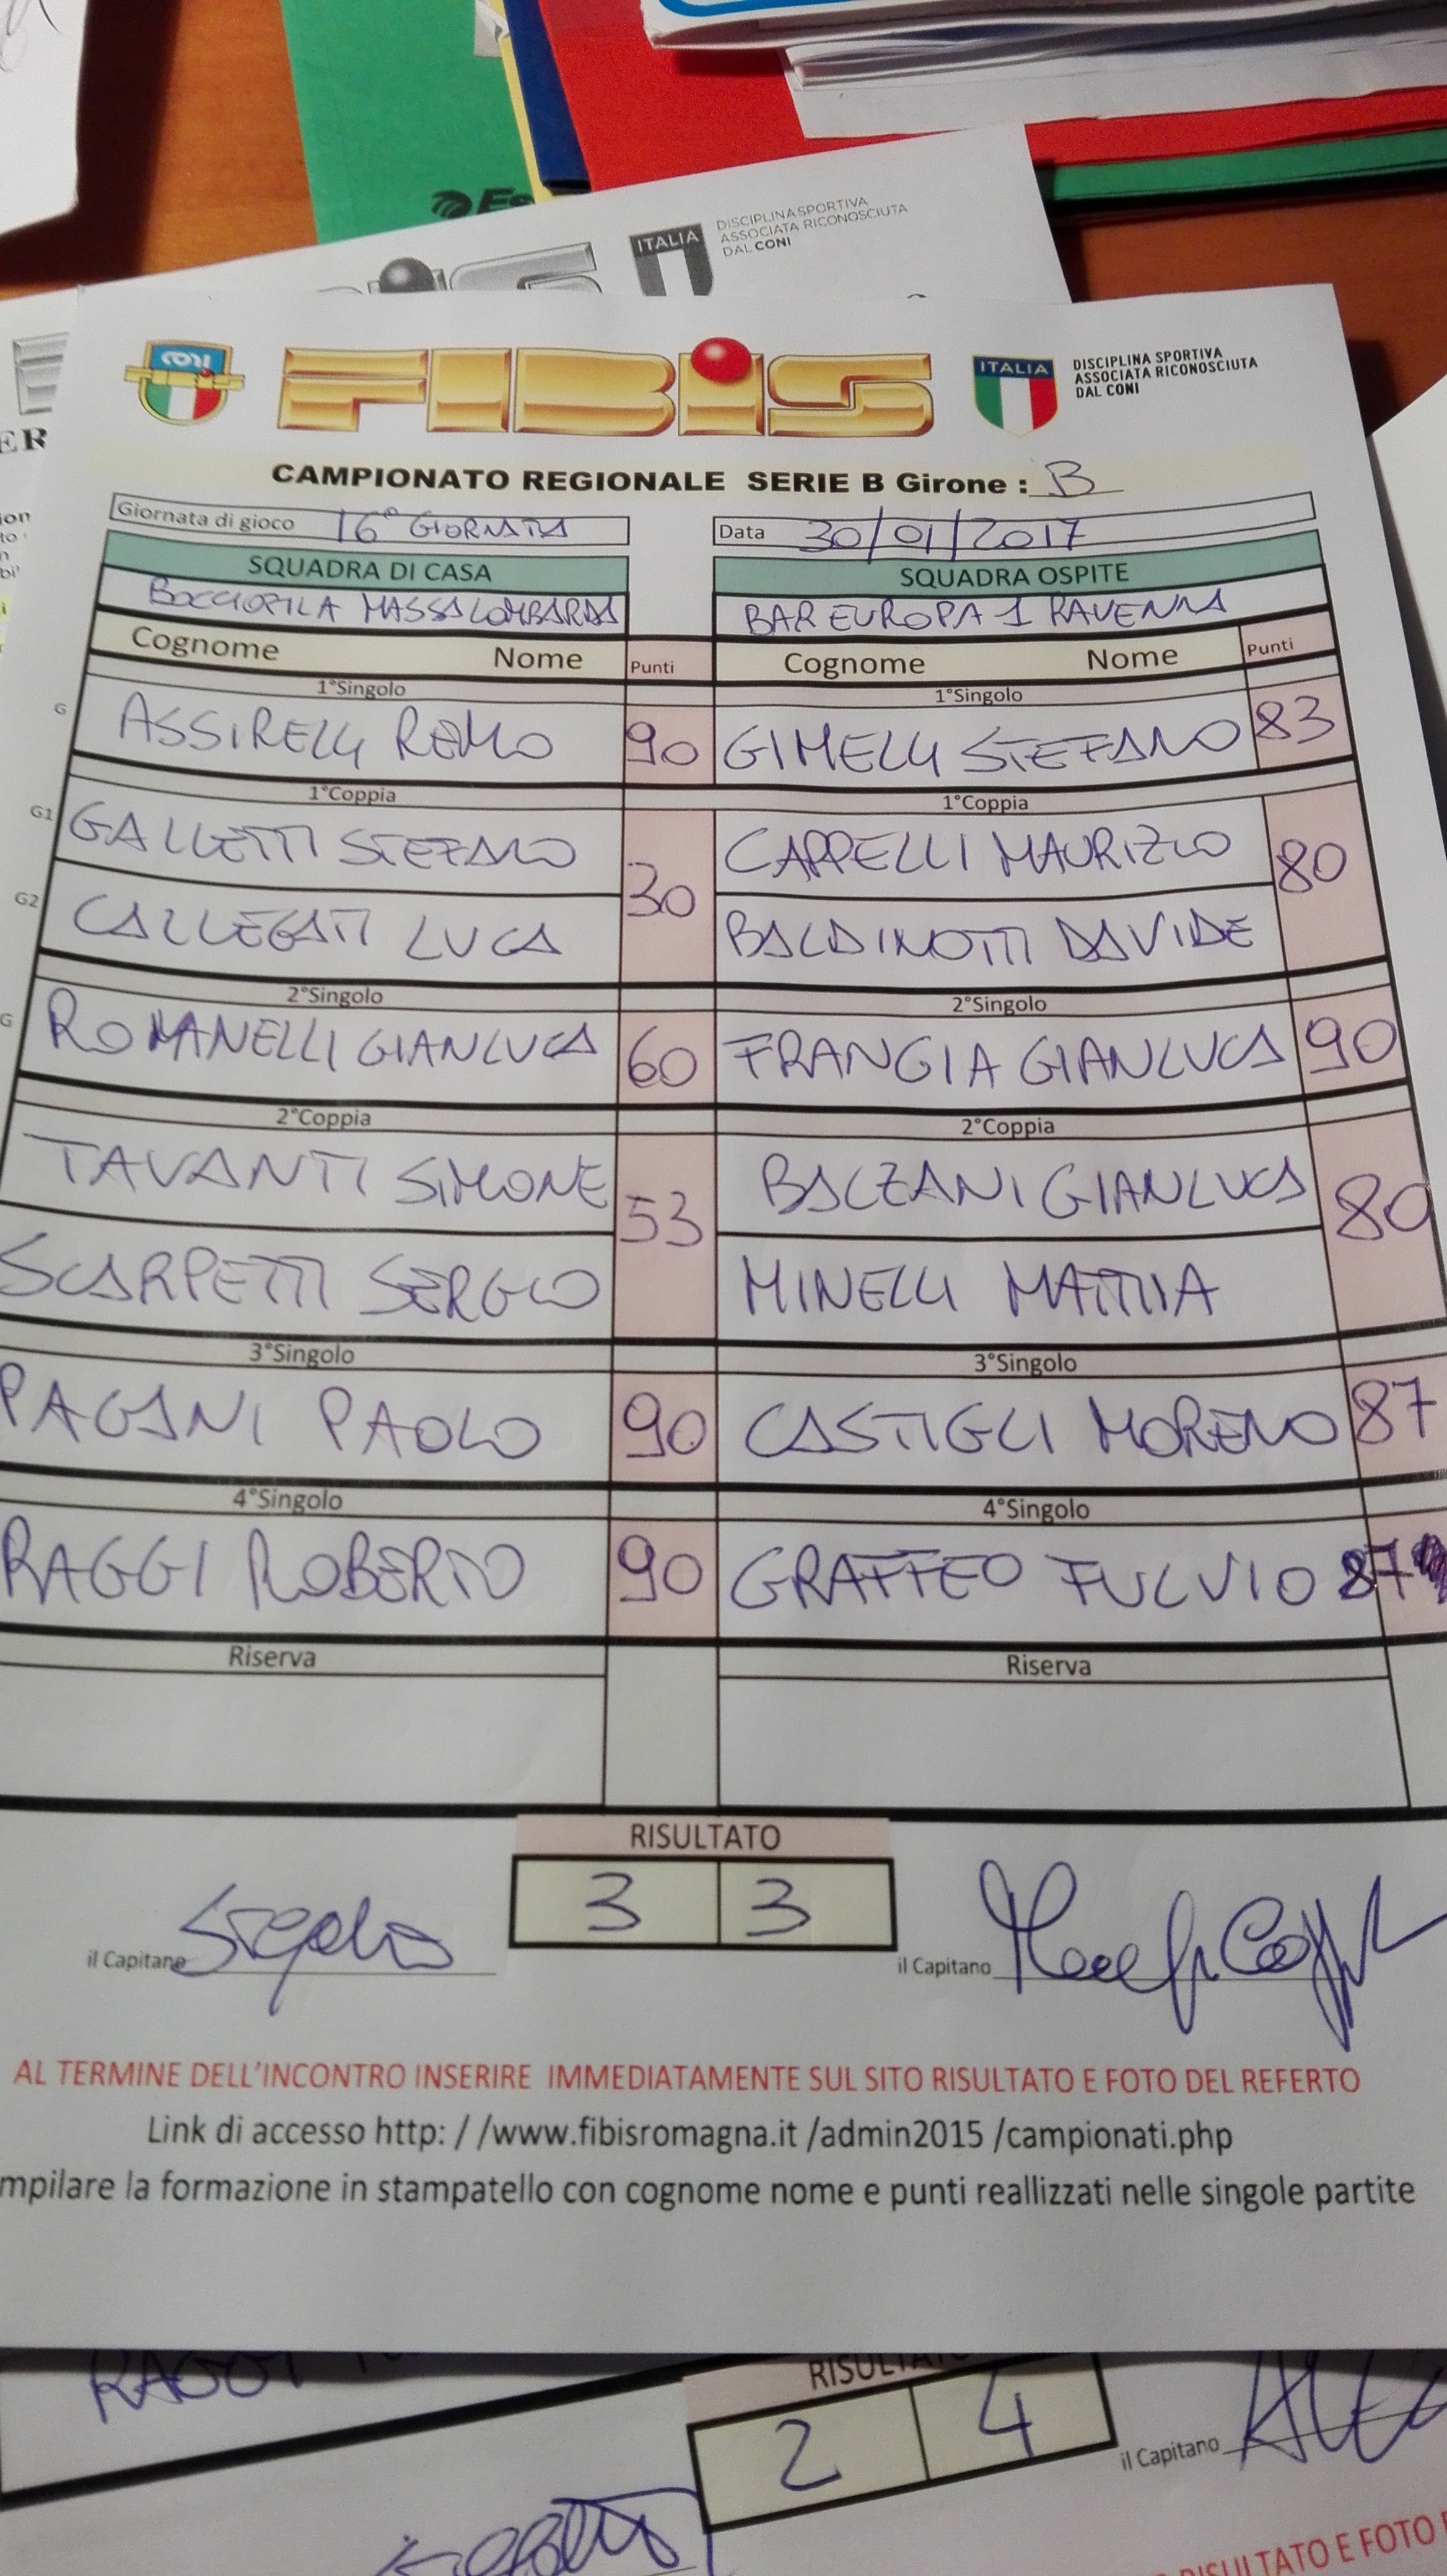 Es
ITALIA DISCIPLINA SPORTIVA
ASSOCIATA RICONOSCIUTA
DAL CONI
ER
CONI FIBiS ITALIA DISCIPLINA SPORTIVA
ASSOCIATA RICONOSCIUTA
DAL CONI
CAMPIONATO REGIONALE SERIE B Girone : B
Giornata di gioco 16° GIORNATA Data 30/01/2017
SQUADRA DI CASA SQUADRA OSPITE
BOCCIOFILA MASSALOMBARDA BAR EUROPA 1 RAVENNA
Cognome Nome Punti Cognome Nome Punti
1°Singolo 1°Singolo
G ASSIRELLI REMO 90 GIMELLI STEFANO 83
1°Coppia 1°Coppia
G1 GALLETTI STEFANO 30 CAPPELLI MAURIZIO 80
G2 CALLEGATI LUCA BALDINOTTI DAVIDE
2°Singolo 2°Singolo
G ROMANELLI GIANLUCA 60 FRANGIA GIANLUCA 90
2°Coppia 2°Coppia
TAVANTI SIMONE 53 BALZANI GIANLUCA 80
SCARPETTI SERGIO MINELLI MATTIA
3°Singolo 3°Singolo
PAGANI PAOLO 90 CASTIGLI MORENO 87
4°Singolo 4°Singolo
RAGGI ROBERTO 90 GRAFFEO FULVIO 87
Riserva Riserva
RISULTATO
3 3
il Capitano il Capitano
AL TERMINE DELL'INCONTRO INSERIRE IMMEDIATAMENTE SUL SITO RISULTATO E FOTO DEL REFERTO
Link di accesso http: / /www.fibisromagna.it /admin2015 /campionati.php
mpilare la formazione in stampatello con cognome nome e punti reallizzati nelle singole partite
RISULTATO
2 4
il Capitano
RISULTATO E FOTO